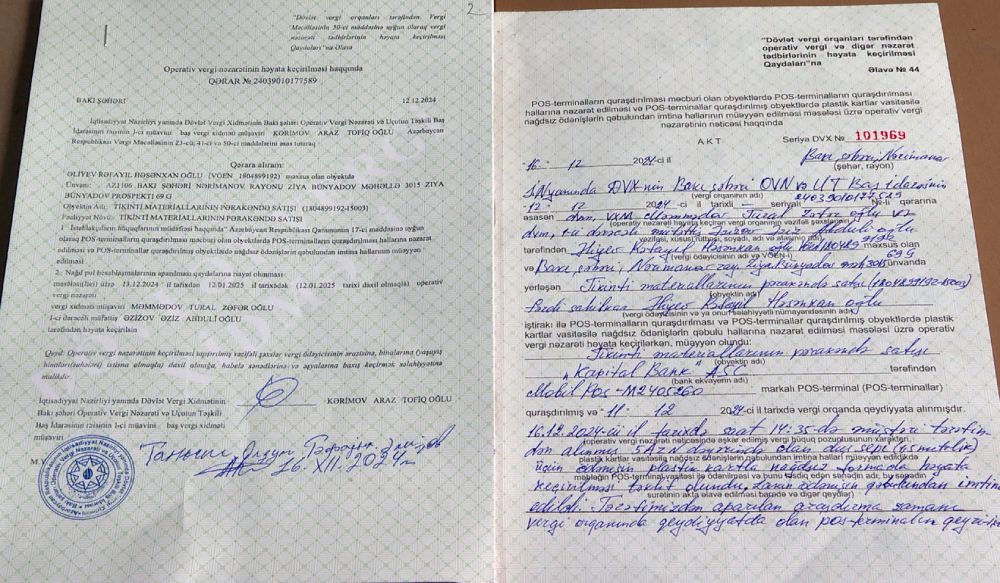 2
"Dövlət vergi orqanları tərəfindən Vergi
Məcəlləsinin 50-ci maddəsinə uyğun olaraq vergi
nəzarəti tədbirlərinin həyata keçirilməsi
Qaydaları"na Əlavə
Operativ vergi nəzarətinin həyata keçirilməsi haqqında
QƏRAR № 24039010177589
BAKI ŞƏHƏRİ 12.12.2024
İqtisadiyyat Nazirliyi yanında Dövlət Vergi Xidmətinin Bakı şəhəri Operativ Vergi Nəzarəti və Uçotun Təşkili Baş
İdarəsinin rəisinin 1-ci müavini baş vergi müşaviri KƏRİMOV ARAZ TOFİQ OĞLU Azərbaycan
Respublikası Vergi Məcəlləsinin 23-cü, 41-ci və 50-ci maddələrini əsas tutaraq
Qərara alıram:
ƏLİYEV RƏFAYIL HƏSƏNXAN OĞLU (VÖEN 1804899192) məxsus olan obyektdə
Ünvan: AZ1106 BAKI ŞƏHƏRİ NƏRİMANOV RAYONU ZİYA BÜNYADOV MƏHƏLLƏ 3015 ZİYA
BÜNYADOV PROSPEKTİ 69 G
Obyektin Adı: TİKİNTİ MATERİALLARININ PƏRAKƏNDƏ SATIŞI (1804899192-15003)
Fəaliyyət Növü: TİKİNTİ MATERİALLARININ PƏRAKƏNDƏ SATIŞI
1. "İstehlakçıların hüquqlarının müdafiəsi haqqında" Azərbaycan Respublikası Qanununun 17-ci maddəsinə uyğun
olaraq POS-terminalların quraşdırılması məcburi olan obyektlərdə POS-terminalların quraşdırılması hallarına nəzarət
edilməsi və POS-terminallar quraşdırılmış obyektlərdə nağdsız ödənişlərin qəbulundan imtina hallarının müəyyən
edilməsi
2. Nağd pul hesablaşmalarının aparılması qaydalarına riayət olunması
məsələ(ləri) üzrə 13.12.2024 il tarixdən 12.01.2025 il tarixədək (12.01.2025 tarixi daxil olmaqla) operativ
vergi nəzarəti
vergi xidməti müşaviri MƏMMƏDOV TURAL ZƏFƏR OĞLU
1-ci dərəcəli müfəttiş ƏZİZOV ƏZİZ ABDULİ OĞLU
tərəfindən həyata keçirilsin
Qeyd: Operativ vergi nəzarətinin keçirilməsi tapşırılmış vəzifəli şəxslər vergi ödəyicisinin ərazisinə, binalarına (yaşayış
binaları(sahələri) istisna olmaqla) daxil olmağa, habelə sənədlərinə və əşyalarına baxış keçirmək səlahiyyətinə
malikdir.
İqtisadiyyat Nazirliyi yanında Dövlət Vergi Xidmətinin
Bakı şəhəri Operativ Vergi Nəzarəti və Uçotun Təşkili
Baş İdarəsinin rəisinin 1-ci müavini baş vergi
müşaviri KƏRİMOV ARAZ TOFİQ OĞLU
16.XII.2024
"Dövlət vergi orqanları tərəfindən
operativ vergi və digər nəzarət
tədbirlərinin həyata keçirilməsi
Qaydaları"na
Əlavə № 44
POS-terminalların quraşdırılması məcburi olan obyektlərdə POS-terminalların quraşdırılması
hallarına nəzarət edilməsi və POS-terminallar quraşdırılmış obyektlərdə plastik kartlar vasitəsilə
nağdsız ödənişlərin qəbulundan imtina hallarının müəyyən edilməsi üzrə operativ vergi
nəzarətinin nəticəsi haqqında
AKT Seriya DVX № 101969
16 12 2024-cü il Bakı şəhəri, Nərimanov
(şəhər, rayon)
İ.N yanında DVX-nin Bakı şəhəri OVN və UT Baş İdarəsinin
(vergi orqanının adı)
12 12 2024-cü il tarixli — seriyalı 24039010177589 №-li qərarına
əsasən Məmmədov Tural Zəfər oğlu və
(operativ vergi nəzarətini həyata keçirən vergi orqanının əməkdaşlarının
vəzifəsi, xüsusi rütbəsi, soyadı, adı və atasının adı)
tərəfindən Əliyev Rəfayıl Həsənxan oğlu məxsus olan
(vergi ödəyicisinin adı və VÖEN-i)
və Bakı şəhəri, Nərimanov ray. Ziya Bünyadov məh 3015 69G ünvanda
yerləşən Tikinti materiallarının pərakəndə satışı (1804899192-15003)
(obyektin adı)
Fərdi sahibkar Əliyev Rəfayıl Həsənxan oğlu
(vergi ödəyicisinin və ya onun səlahiyyətli nümayəndəsinin adı)
iştirakı ilə POS-terminalların quraşdırılması və POS-terminallar quraşdırılmış obyektlərdə plastik
kartlar vasitəsilə nağdsız ödənişlərin qəbulu hallarına nəzarət edilməsi məsələsi üzrə operativ
vergi nəzarəti həyata keçirilərkən, müəyyən olundu:
Tikinti materiallarının pərakəndə satışı
(obyektin adı)
"Kapital Bank" ASC tərəfindən
(bank ekvayerin adı)
Mobil Pos - M2405260 markalı POS-terminal (POS-terminallar)
quraşdırılmış və 11 12 2024-cü il tarixdə vergi orqanda qeydiyyata alınmışdır.
16.12.2024-cü il tarixdə saat 14:35-də müştəri tərəfin-
(operativ vergi nəzarəti nəticəsində aşkar edilmiş vergi hüquq pozuntusunun xarakteri,
dən alınmış 5 AZN dəyərində olan
plastik kartlar vasitəsilə nağdsız ödənişlərin qəbulundan imtina halları müəyyən edildikdə
üçün ödənişin plastik kartla nağdsız formada həyata
məbləğin POS-terminal vasitəsi ilə ödənilməsi və bunu təsdiq edən sənədin adı, bu sənədin
keçirilməsi təklif olundu, lakin ödənişin qəbulundan imtina
surətinin akta əlavə edilməsi barədə və digər qeydlər)
edildi. Tərəfimizdən aparılan araşdırma zamanı
vergi orqanında qeydiyyatda olan pos-terminalın qeyri-